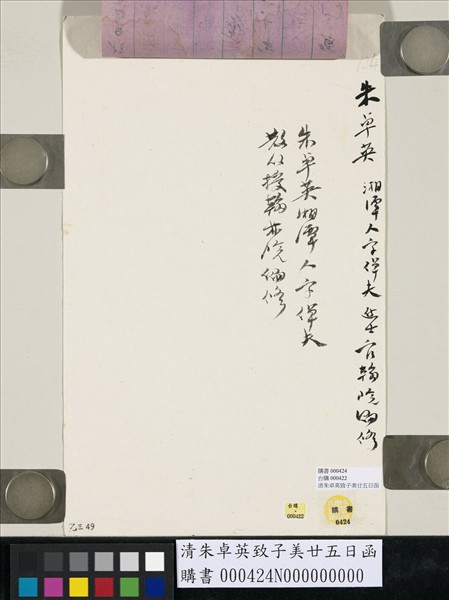 朱卓英 湘潭人字倬夫 進士 官翰院編修
朱卓英湘潭人字倬夫
散館授翰林院編修
購書 000424
台購 000422
清朱卓英致子美廿五日函
台購
000422
購書
0424
乙三 49
清朱卓英致子美廿五日函
購書 000424N000000000